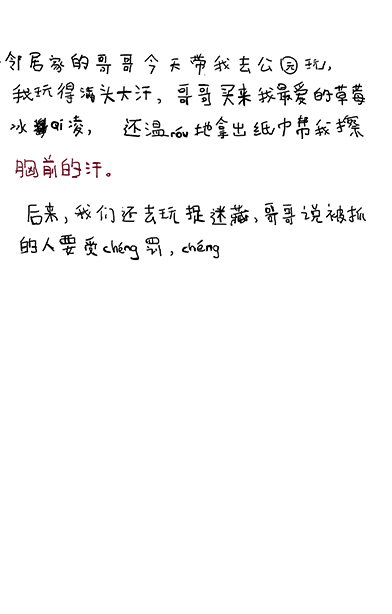 邻居家的哥哥今天带我去公园玩,
我玩得满头大汗, 哥哥买来我最爱的草莓
冰qi凌, 还温róu地拿出纸巾帮我擦
胸前的汗。
后来, 我们还去玩捉迷藏, 哥哥说被抓
的人要受chéng罚, chéng